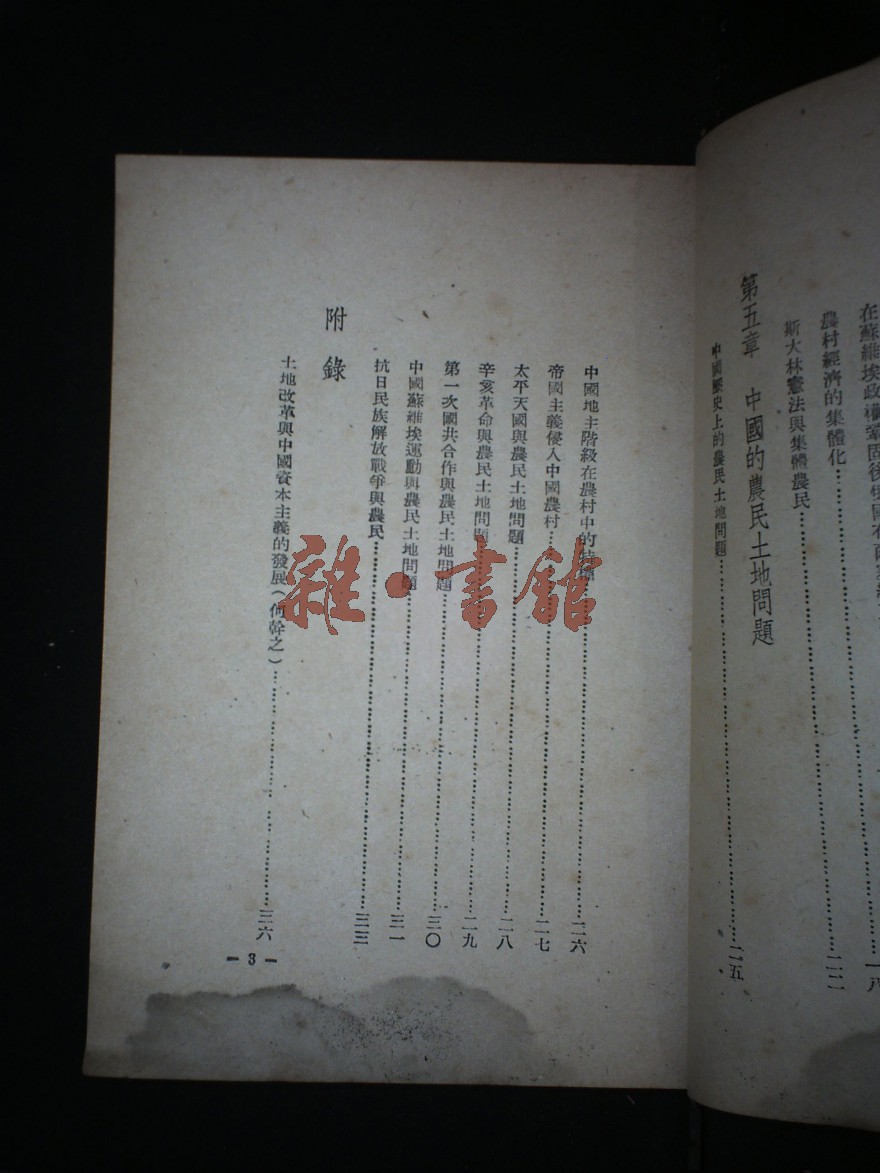 在蘇維埃政權鞏固後
一八
農村經濟的集體化……二二
斯大林憲法與集體農民
第五章 中國的農民土地問題
中國歷史上的農民土地問題……二五
中國地主階級在農村中的……二六
帝國主義侵入中國農村……二七
太平天國與農民土地問題……二八
辛亥革命與農民土地問題……二九
第一次國共合作與農民土地問題……三〇
中國蘇維埃運動與農民土地問題……三一
抗日民族解放戰爭與農民……三三
附錄
土地改革與中國資本主義的發展(何幹之)……三六
- 3 -
雜·書館